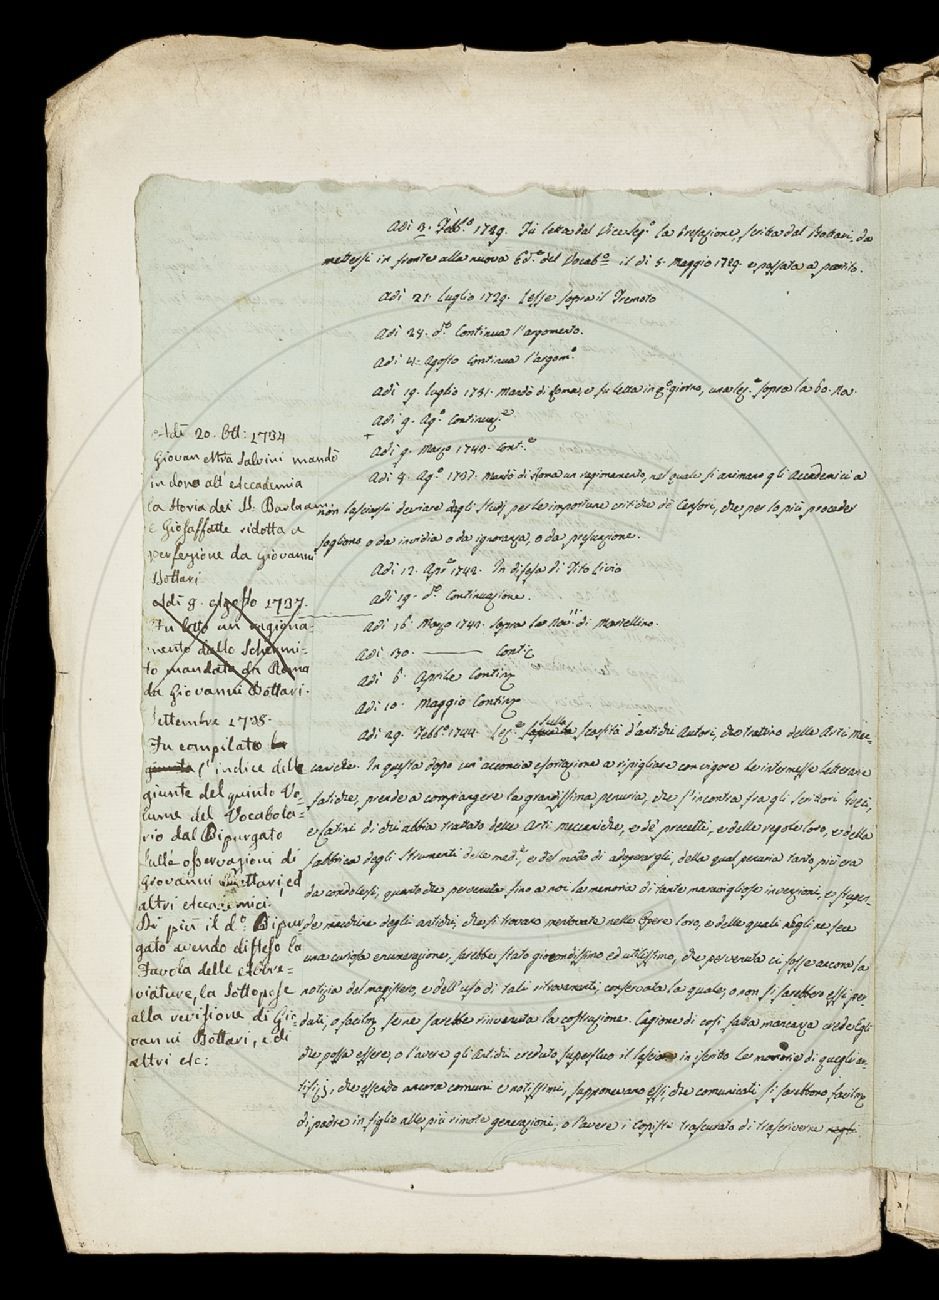 Adì 3. Febb.º 1729. Fù letta dal Viceseg.º la Prefazione, scritta dal Bottari, da
mettersi in fronte alla nuova Ed.ᵉ del Vocab.º il dì 5. Maggio 1729. e passata a partito.
Adì 21. Luglio 1729. Lesse sopra il Tremoto
Adì 28. dº. Continua l'argomento.
Adì 4. Agosto Continua l'argom.º
Adì 19. Luglio 1731. Mandò di Roma, e fu letta in qº. giorno, una lez.ᵉ sopra la 60. No.
Adì 9. Agº. Continuaz.ᵉ
Adì 9. Marzo 1740. Cont.ᵉ
Adì 8. Agº. 1737. Mandò di Roma un ragionamento, nel quale si animano gli Accademici a
non lasciarsi deviare dagli Studj per le importune critiche de' Censori, che per lo più proceder
sogliono o da invidia o da ignoranza, o da presunzione.
Adì 12. Apr.º 1742. In difesa di Tito Livio
Adì 19. dº. Continuazione.
Adì 16. Marzo 1741. sopra le di Marcellino.
Adì 30. ——— Contiz
Adì 6. Aprile Continz
Adì 10. Maggio Continz
Adì 29. Febbº. 1744. Lez.ᵉ sopra la sulla scarsità d'antichi Autori, che trattino delle Arti Mec-
caniche. In questa dopo un'acconcia esortazione a ripigliare con vigore le intermesse letterarie
fatiche, prende a compiangere la grandissima penuria, che s'incontra fra gli Scrittori Greci,
e Latini di chi abbia trattato delle Arti meccaniche, e de' precetti, e delle regole loro, e della
fabbrica degli Strumenti delle med.ᵉ, e del modo di adoperargli, della qual penuria tanto più era
da condolersi, quanto che pervenuta fino a noi la memoria di tante maravigliose invenzioni, e stupen-
de macchine degli antichi, che si trovano mentovate nelle Opere loro, e delle quali Egli ne fece
una curiosa enumerazione, sarebbe stato giocondissimo ed utilissimo, che pervenuta ci fosse ancora la
notizia del magistero, e dell'uso di tali ritrovamenti; conservata la quale, o non si sarebbero essi per-
duti, o facilmz se ne sarebbe rinvenuta la costruzione. Cagione di così fatta mancanza crede Egli
che possa essere, o l'avere gli Antichi creduto superfluo il lasciare in iscritto le memorie di quegli ar-
tifizj, che essendo ancora comuni e notissimi, supponevano essi, che comunicati si sarebbono facilmz
di padre in figlio alle più rimote generazioni, o l'avere i Copisti trascurato di trascriverne
Adì 20. Ott: 1734
Giovan Mra Salvini mandò
in dono all'Accademia
la Storia dei SS. Barlaam
e Giosaffatte ridotta a
perfezione da Giovanni
Bottari
Adì 8. Agosto 1737.
Fu letto un ragiona-
mento dallo Schermi-
to mandata da Roma
da Giovanni Bottari.
Settembre 1738.
Fu compilato la
giunta l'indice delle
giunte del quinto Vo-
lume del Vocabola-
rio dal Ripurgato
sulle osservazioni di
Giovanni Bottari ed
altri Accademici.
Di più il dº. Ripur-
gato avendo disteso la
Tavola delle abbre-
viature, la sottopose
alla revisione di Gio-
vanni Bottari, e di
altri etc: